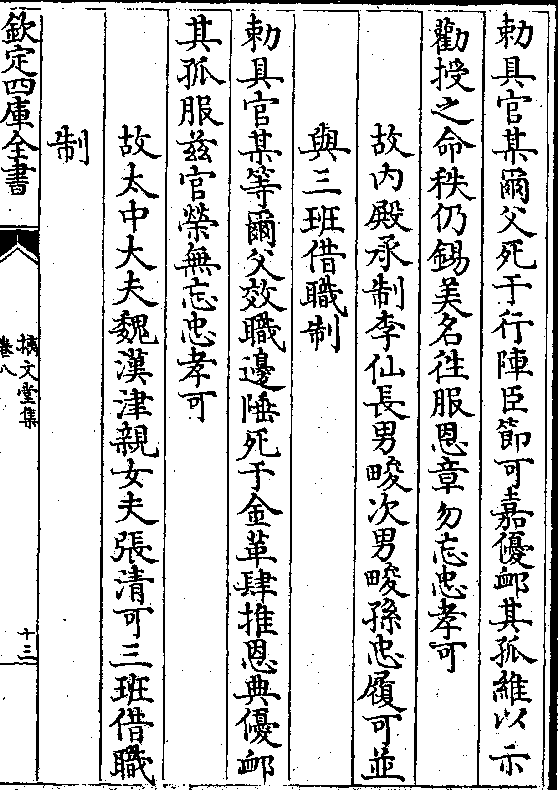 勅具官某爾父死于行陣臣節可嘉優衈其孤維以示
勸授之命秩仍錫美名徃服恩章勿忘忠孝可
故內殿承制李仙長男畯次男畯孫忠履可並
與三班借職制
勅具官某等爾父效職邊陲死于金革肆推恩典優衈
其孤服兹官榮無忘忠孝可
故太中大夫魏漢津親女夫張清可三班借職
制
欽定四庫全書
摛文堂集
卷八
十三